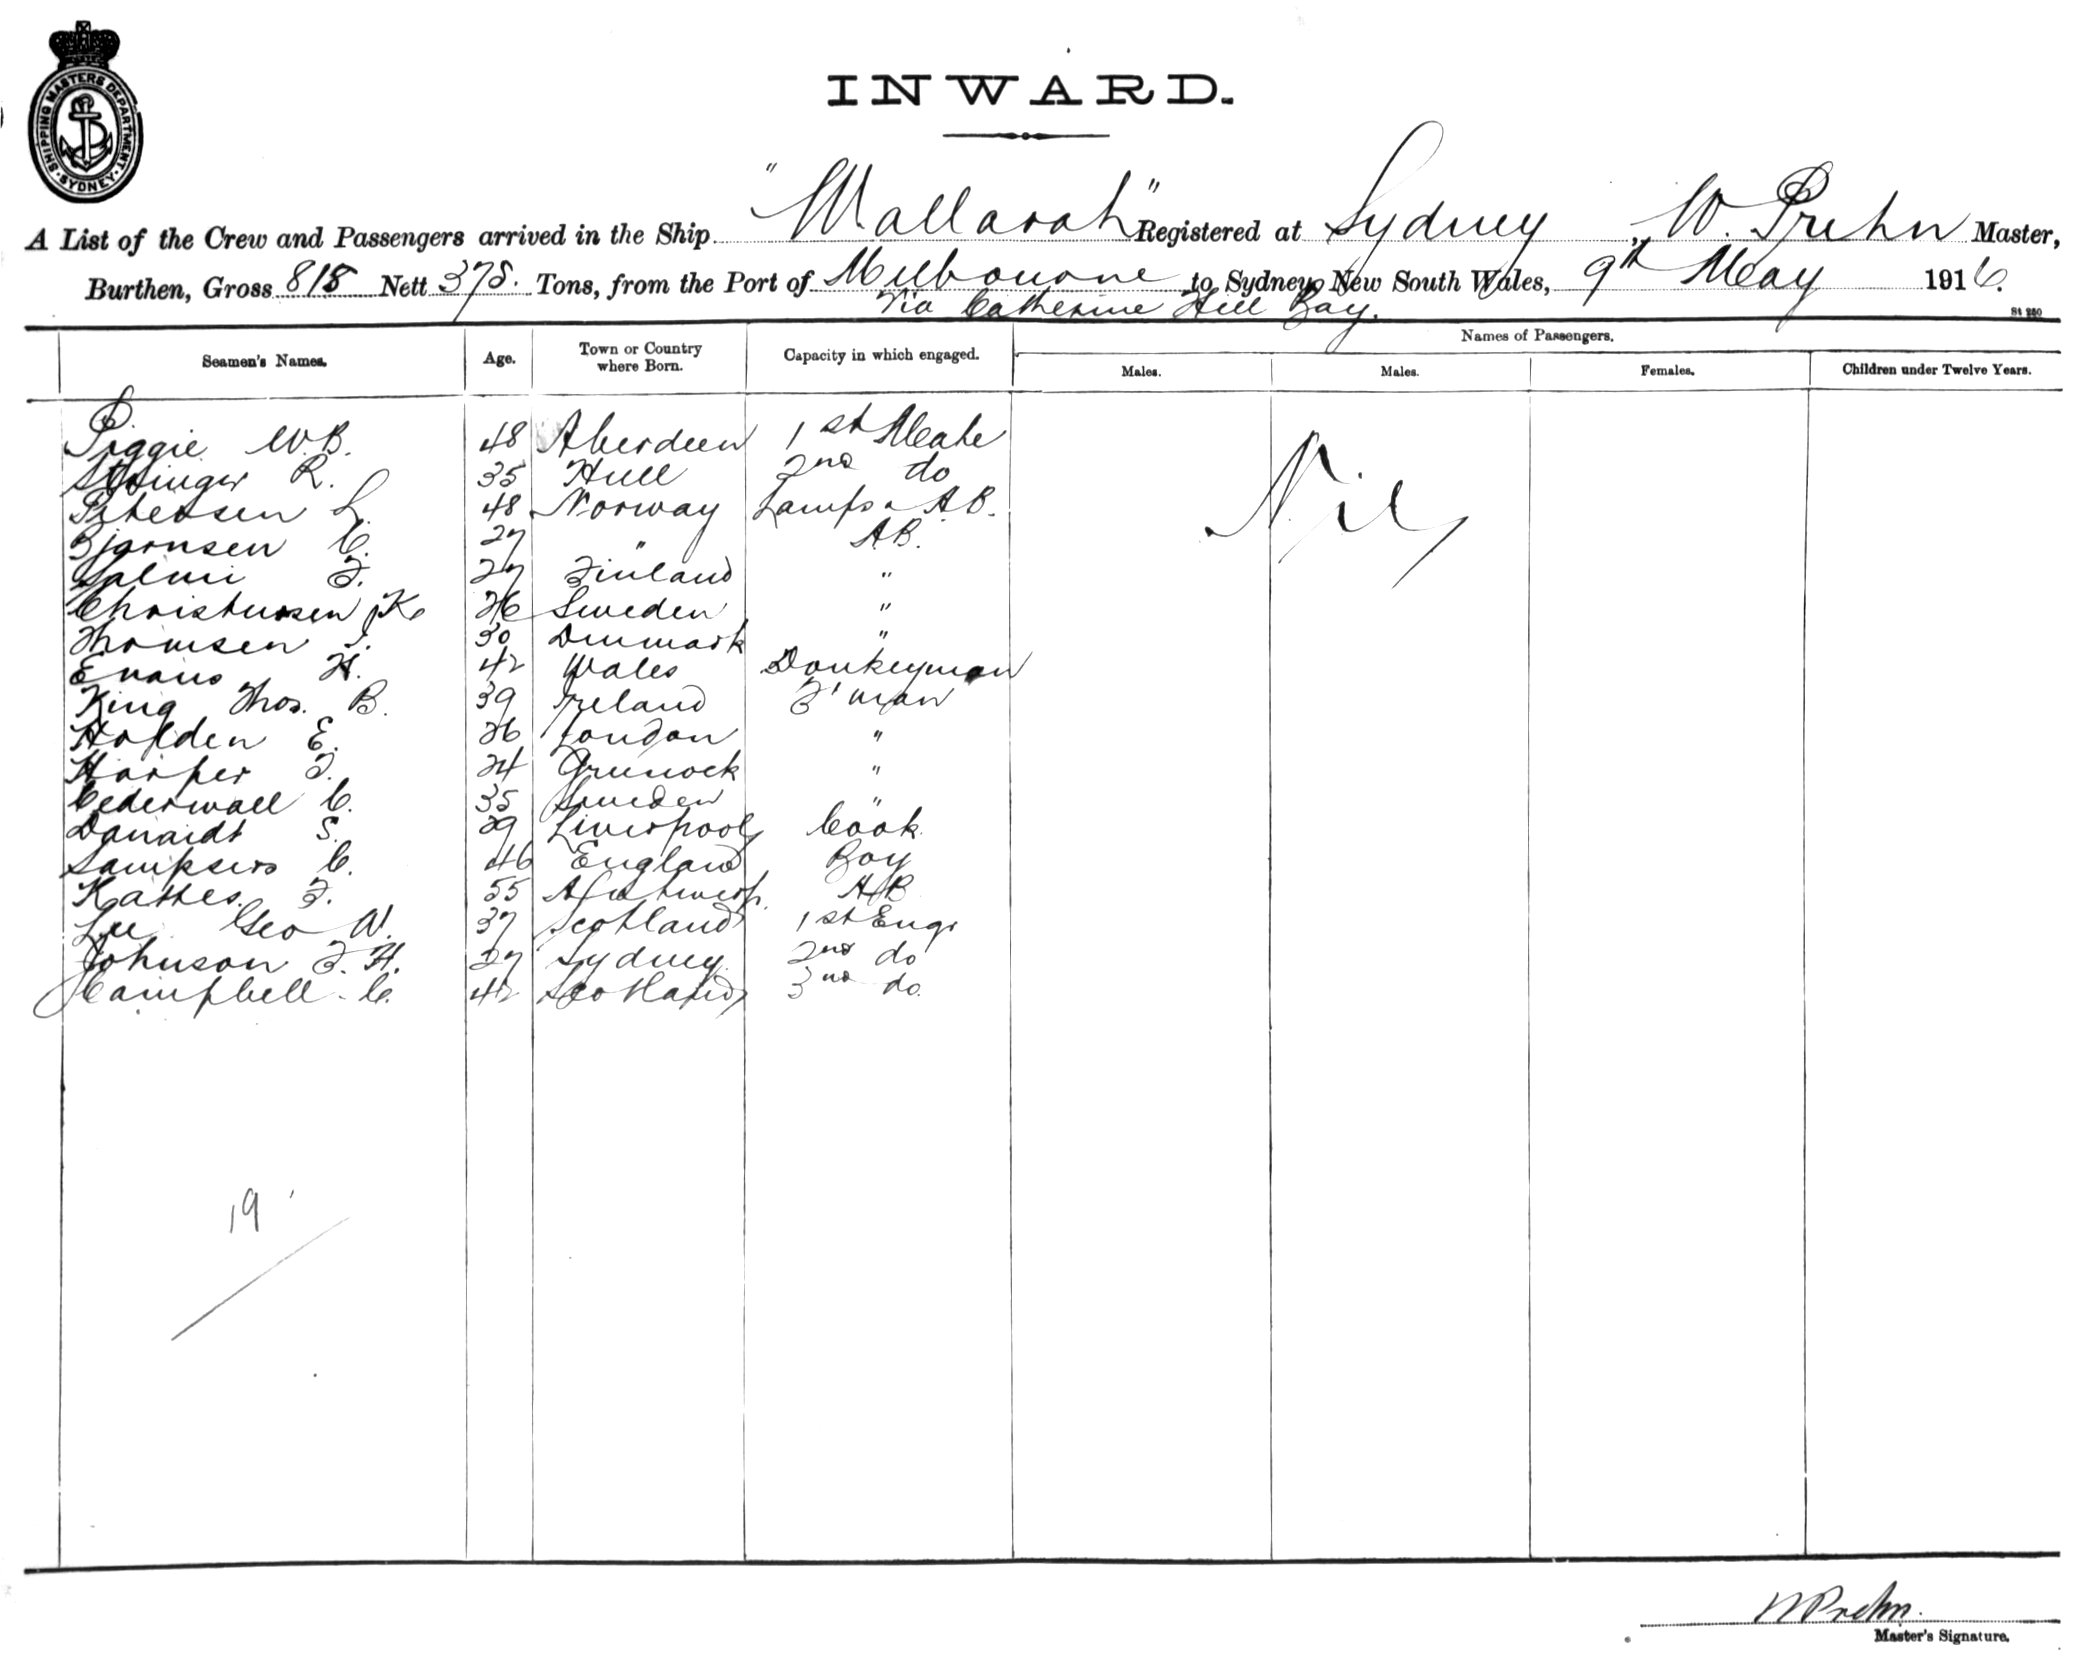 SHIPPING MASTERS DEPARTMENT
SYDNEY
INWARD.
A List of the Crew and Passengers arrived in the Ship "Wallarah" Registered at Sydney, W. Prehn Master,
Burthen, Gross 818 Nett 378. Tons, from the Port of Melbourne to Sydney New South Wales, 9th May 1916.
Via Catherine Hill Bay.
St 250
Seamen's Names. Age. Town or Country where Born. Capacity in which engaged. Names of Passengers.
Males. Males. Females. Children under Twelve Years.
Piggie W.B. 48 Aberdeen 1st Mate
Stringer R. 35 Hull 2nd do
Petersen L. 48 Norway Lamps & AB.
Bjornsen C. 27 " AB.
Salmi F. 27 Finland "
Christensen K. 26 Sweden "
Thomsen 30 Denmark "
Evans H. 42 Wales Donkeyman
King Thos. B. 39 Ireland F'man
Holden E. 26 London "
Harper F. 24 Greenock "
Cederwall C. 35 Sweden "
S. 29 Liverpool Cook
C. 46 England Boy
Kattes. F. 55 Antwerp. AB
Lee Geo W. 37 Scotland 1st Engr
Johnson F. H. 27 Sydney 2nd do
Campbell. C. 42 Scotland 3nd do.
Nil
19
W Prehn.
Master's Signature.